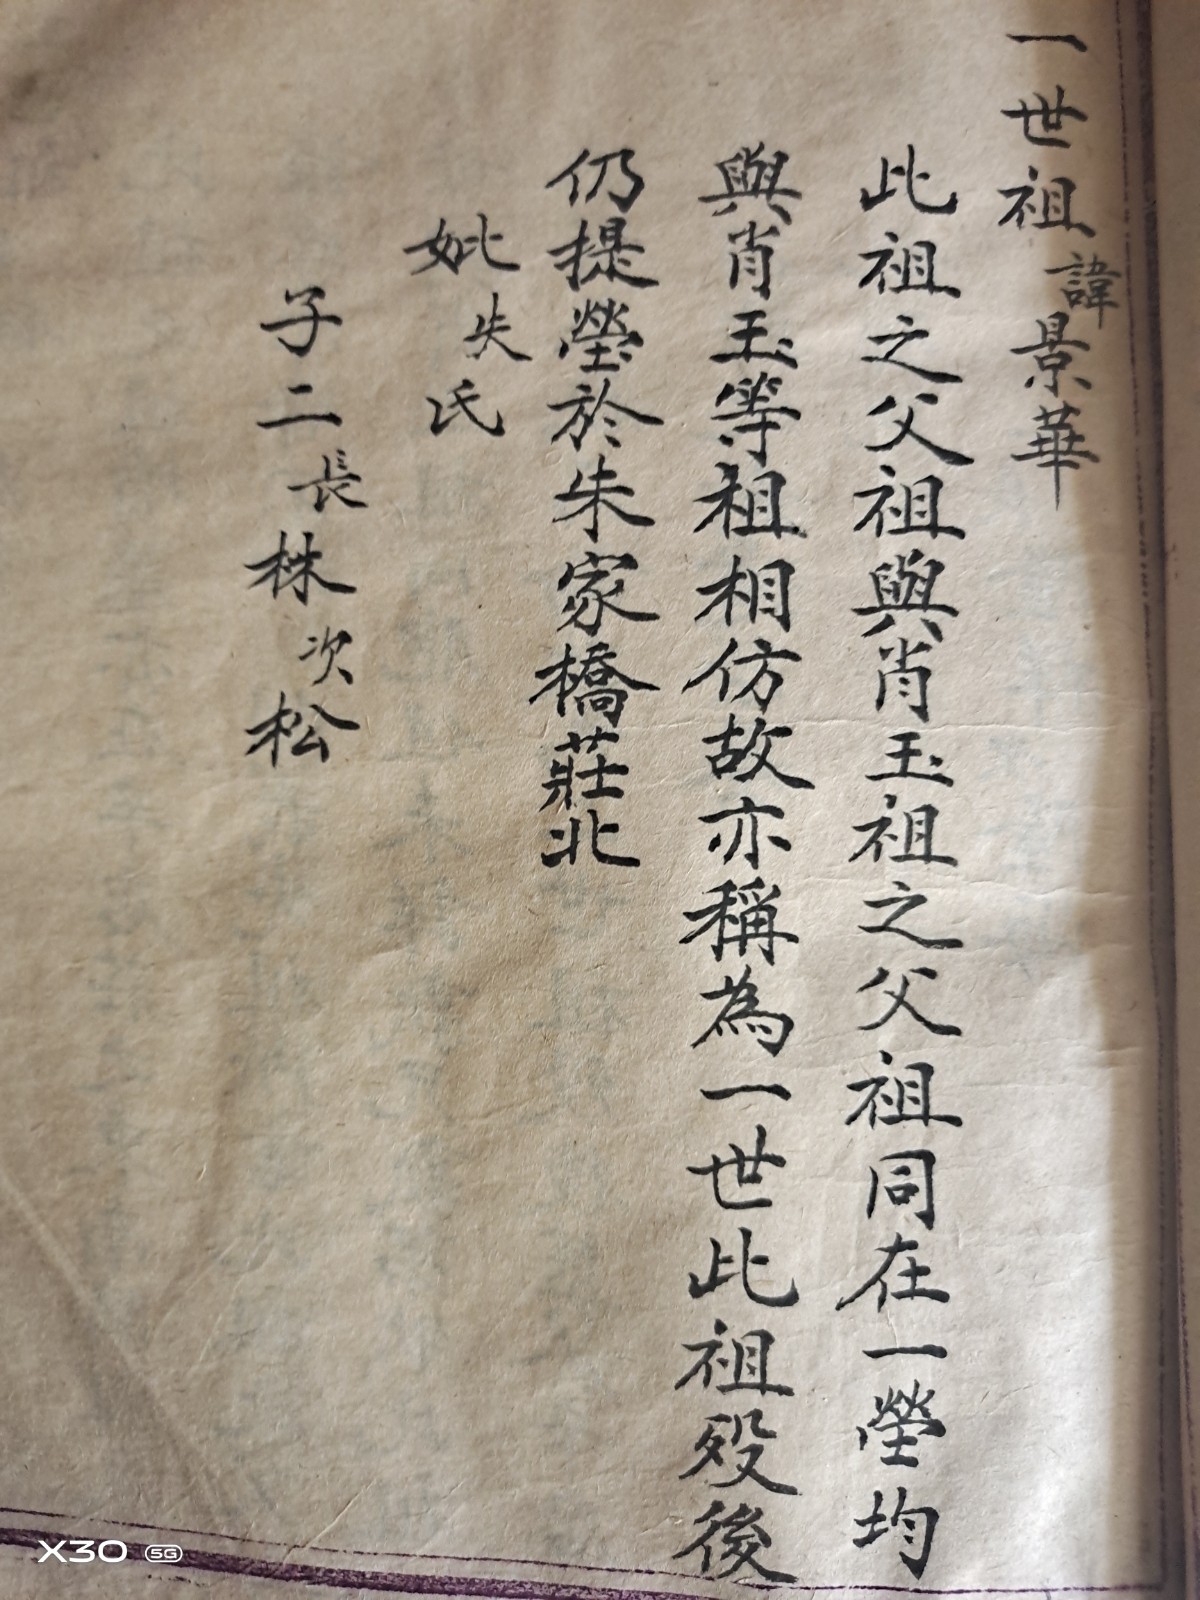 一世祖諱景華
此祖之父祖與肖玉祖之父祖同在一塋均
與肖玉等祖相仿故亦稱為一世此祖歿後
仍提塋於朱家橋莊北
妣失氏
子二長株次松
X30 5G